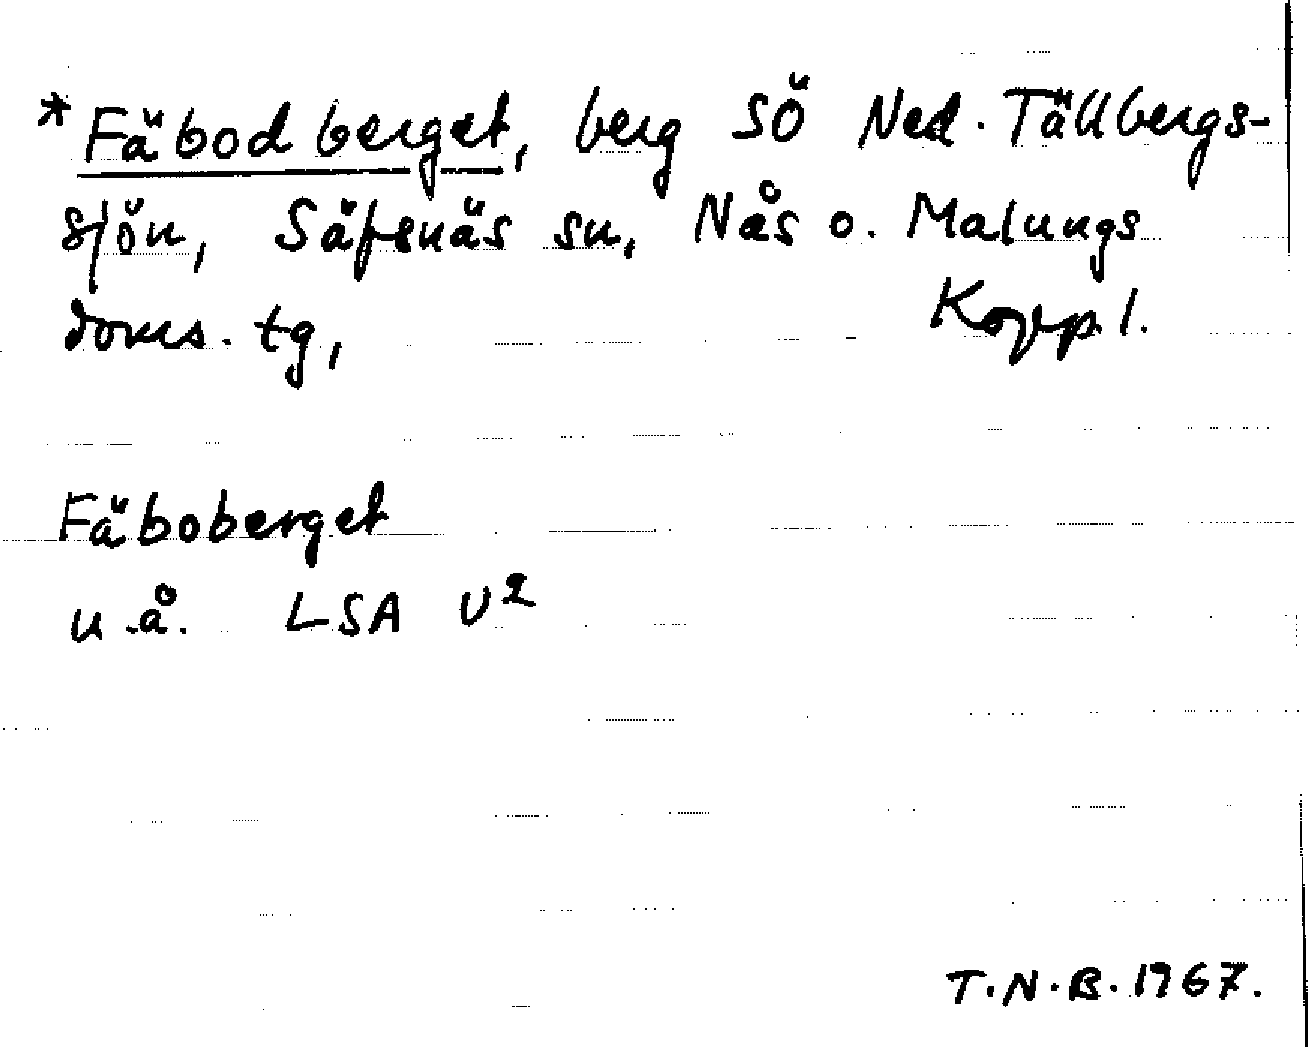 *Fäbodberget, berg SÖ Ned. Tällbergs-
sjön, Säfsnäs sn, Nås o. Malungs
doms. tg, Kopp l.
Fäboberget
u.å. LSA U²
T.N.B. 1967.